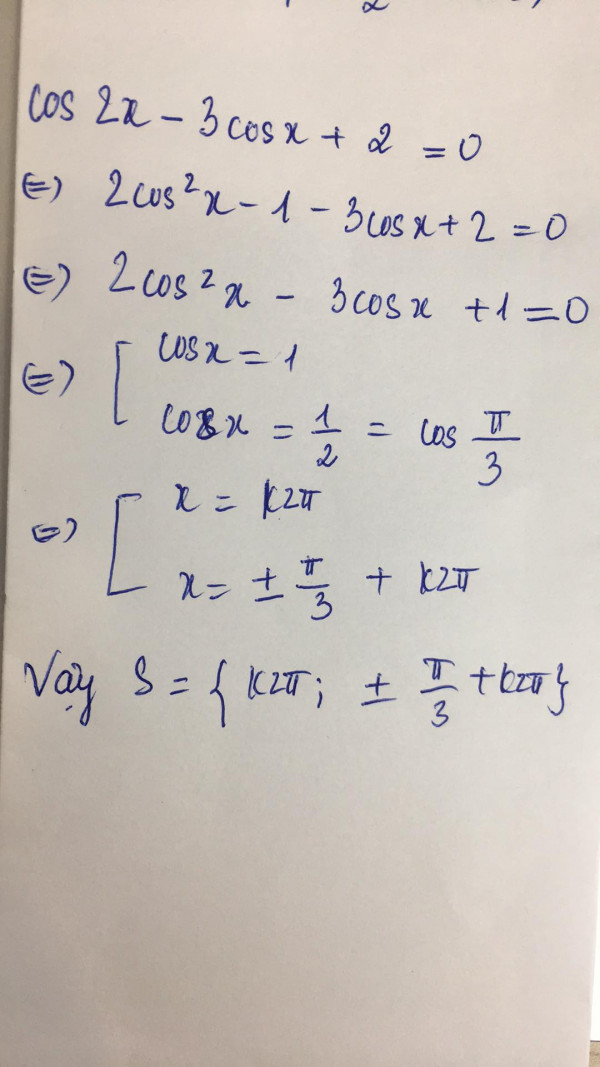 cos 2x - 3cosx + 2 = 0
⇔ 2cos²x - 1 - 3cosx + 2 = 0
⇔ 2cos²x - 3cosx + 1 = 0
⇔ [ cosx = 1
cosx = 1/2 = cos π/3
⇔ [ x = k2π
x = ± π/3 + k2π
Vậy S = { k2π; ± π/3 + k2π }